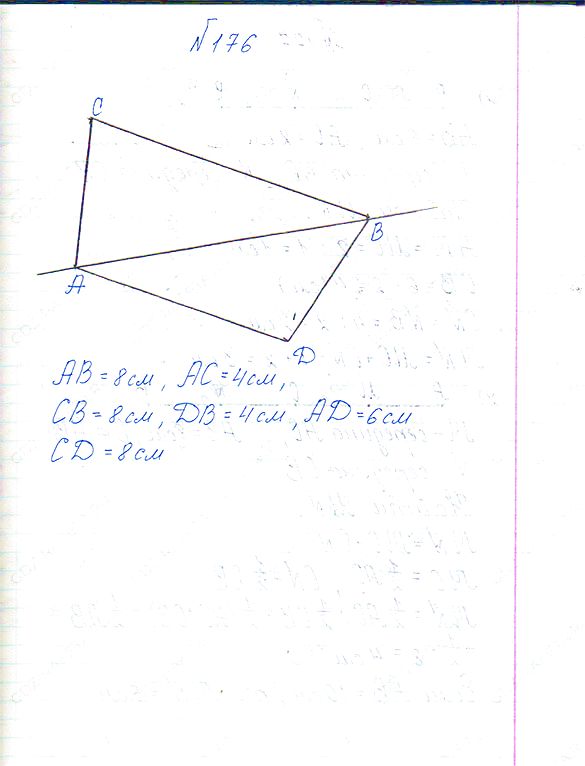 №176
C
B
A
D
AB = 8 см, AC = 4 см,
CB = 8 см, DB = 4 см, AD = 6 см
CD = 8 см